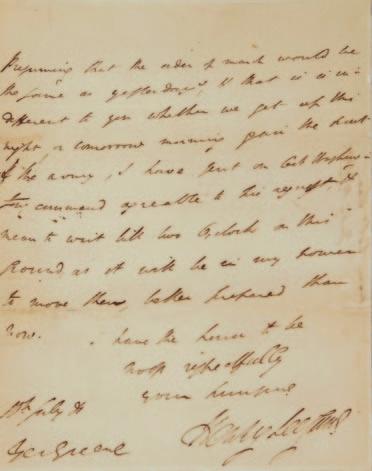 Presuming that the order of march would be
the same as yesterdays, & that it is in-
different to you whether we get up this
night or tomorrow morning the
of the army, I have sent on Col
command agreable to his request, &
mean to wait till two O,clock on this
ground as it will be in my power
to move then, better prepared than
now.
I have the honor to be
most respectfully
your
10th July
Gen Greene
Henry Lee Jun